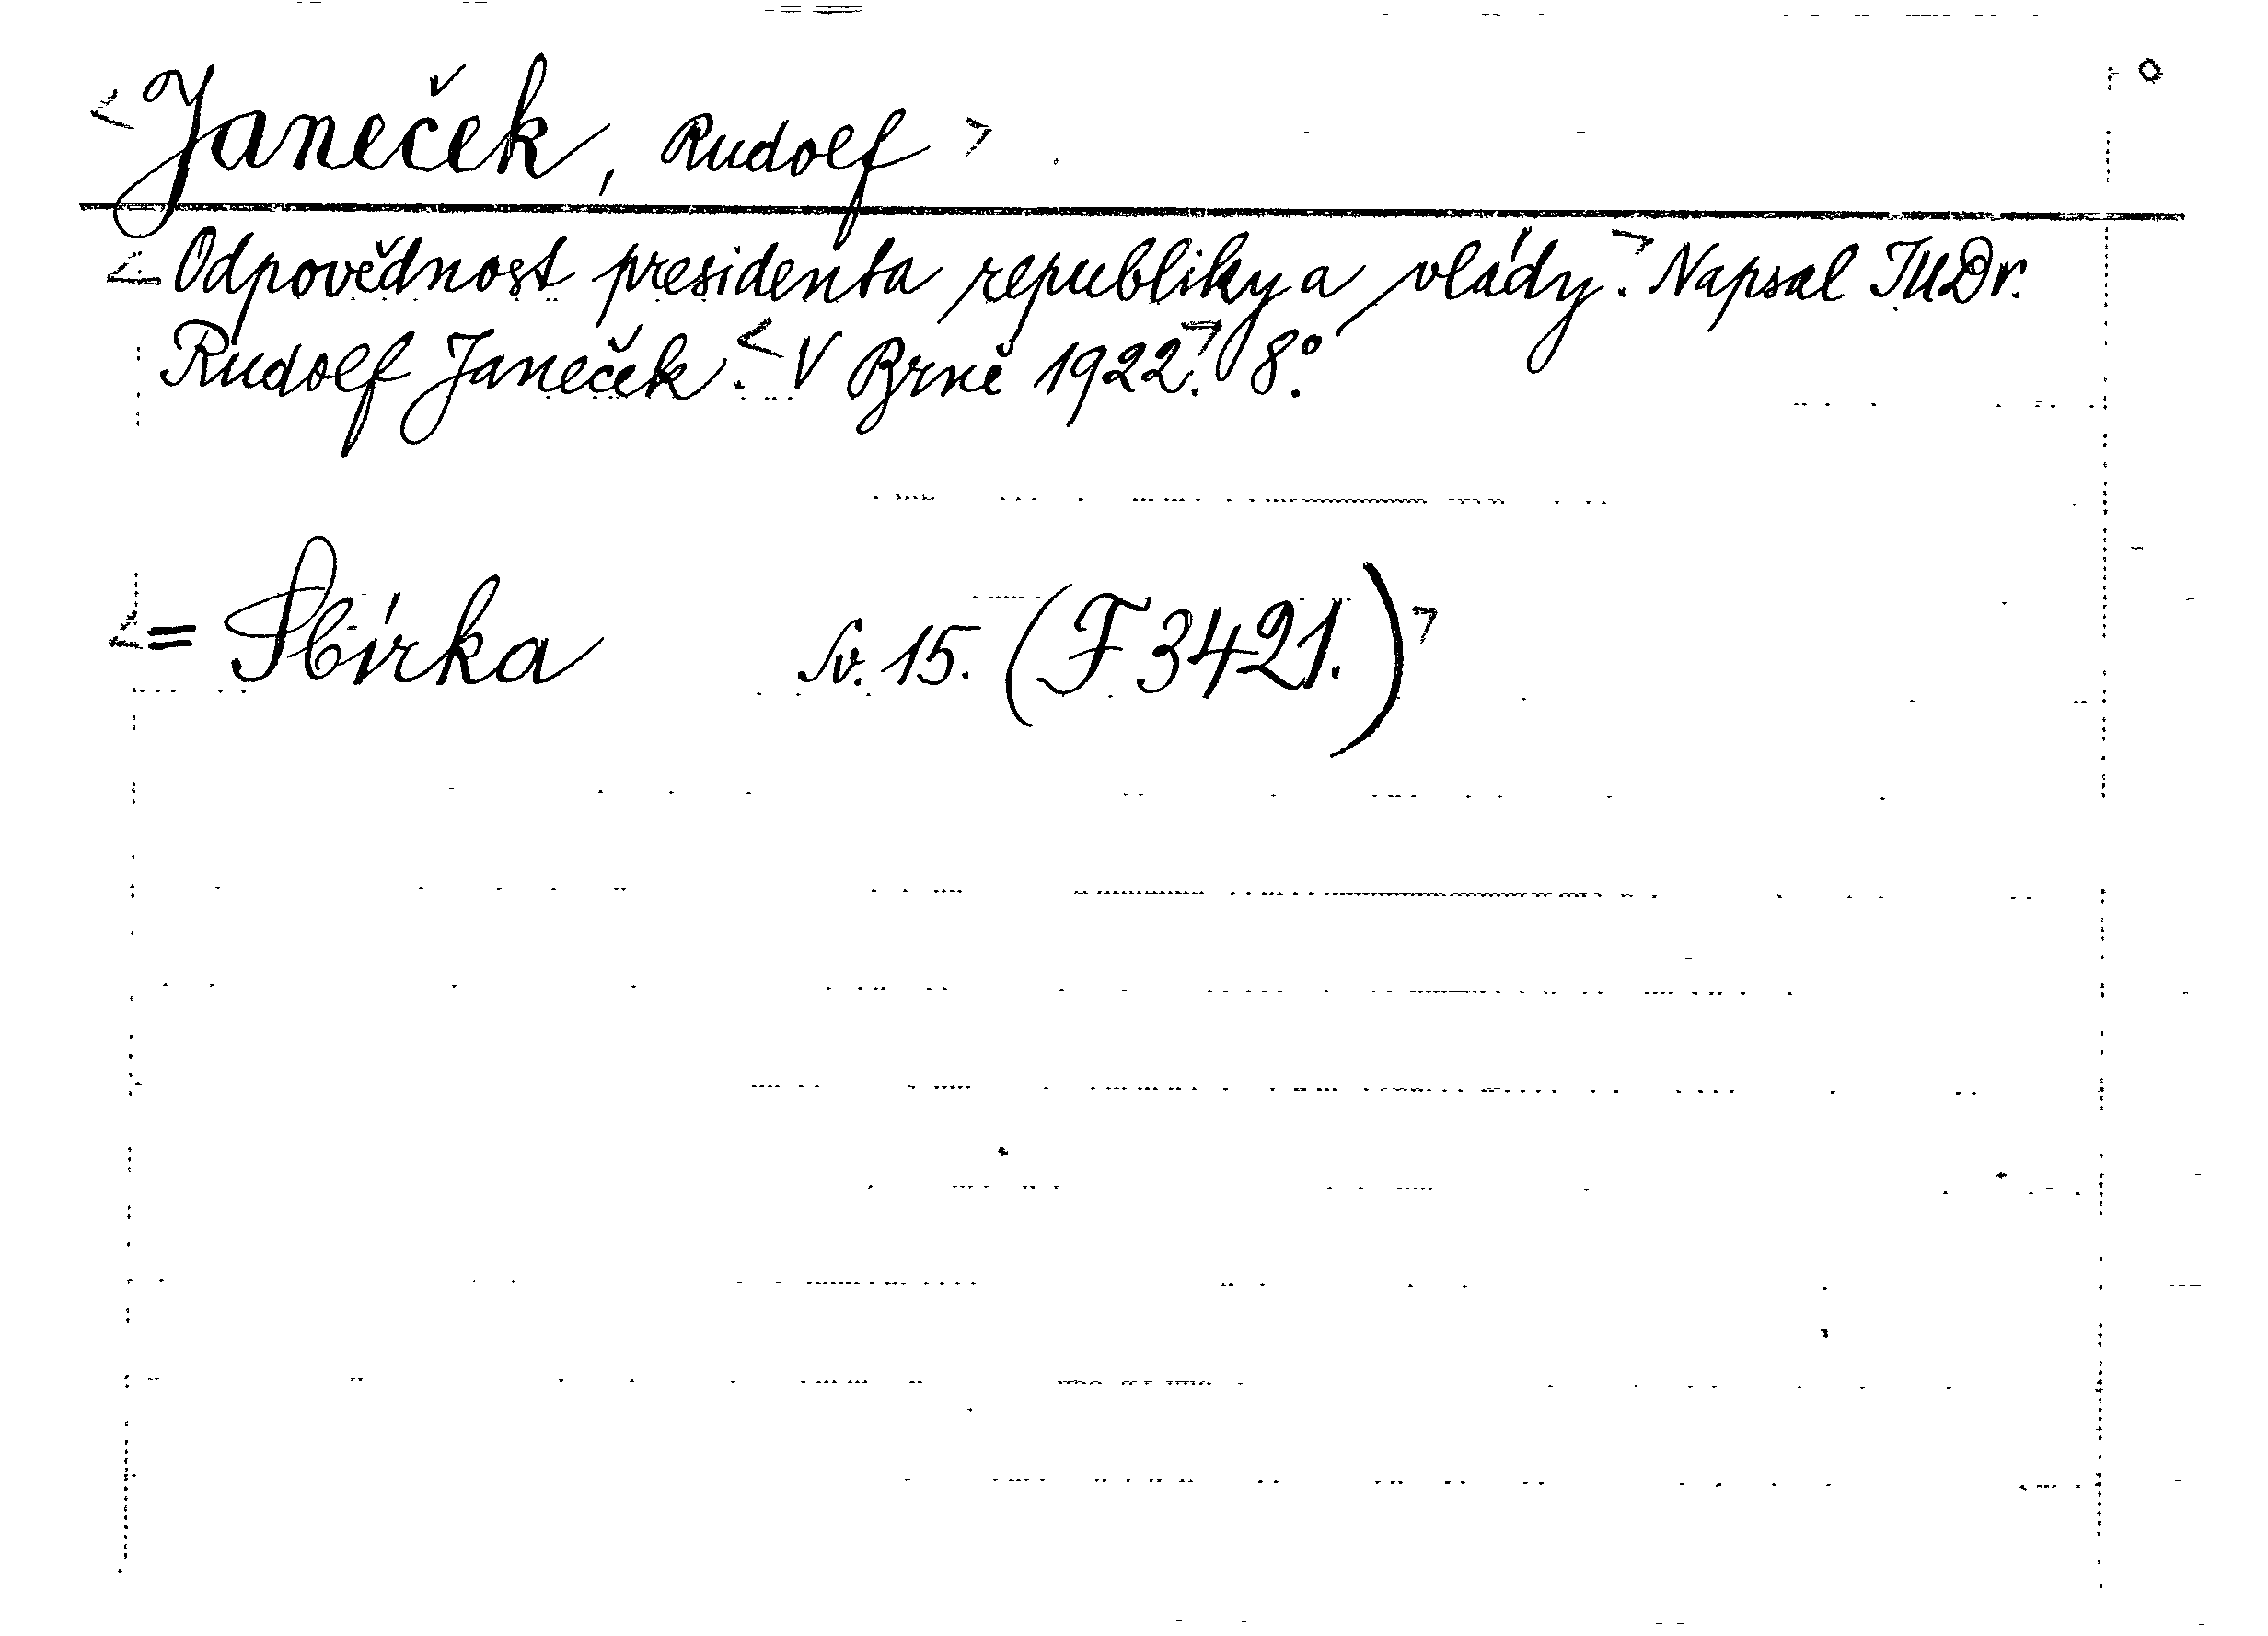 <Janeček, Rudolf>
<Odpovědnost presidenta republiky a vlády>. Napsal JUDr.
Rudolf Janeček. <V Brně 1922.> 8°.
<= Sbírka Sv. 15. (F 3421.)>